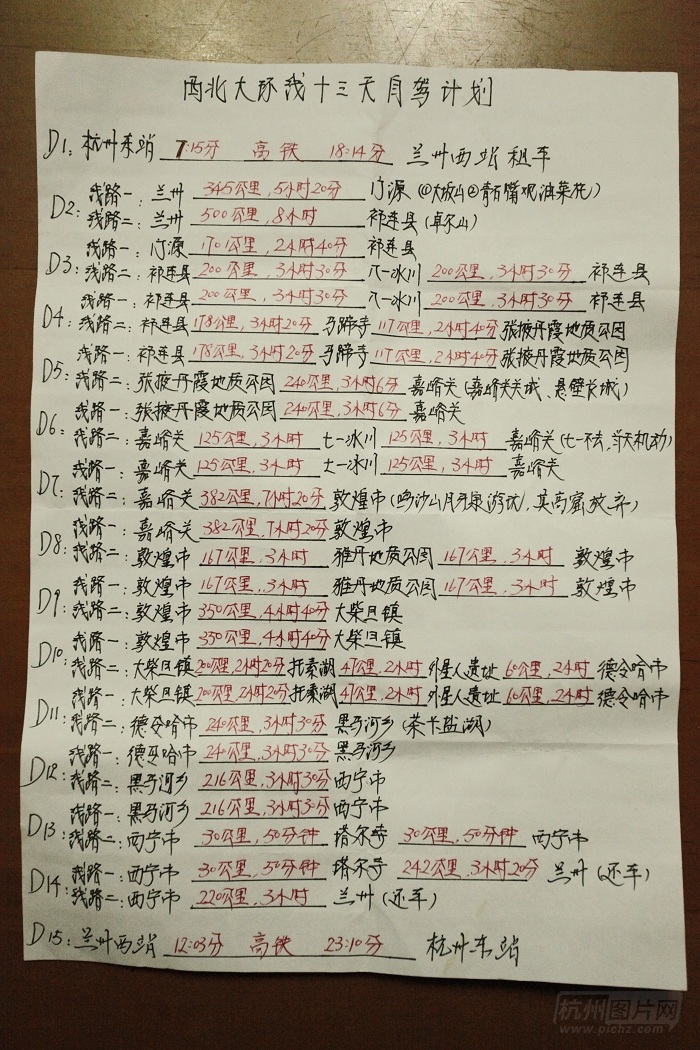 西北大环线十三天自驾计划
D1: 杭州东站 7:15分 高铁 18:14分 兰州西站租车
D2: 线路一: 兰州 345公里,5小时20分 门源(①大坂山②青石嘴观油菜花)
线路二: 兰州 500公里,8小时 祁连县(卓尔山)
D3: 线路一: 门源 170公里,2小时40分 祁连县
线路二: 祁连县 200公里,3小时30分 八一冰川 200公里,3小时30分 祁连县
D4: 线路一: 祁连县 200公里,3小时30分 八一冰川 200公里,3小时30分 祁连县
线路二: 祁连县 178公里,3小时20分 马蹄寺 117公里,2小时40分 张掖丹霞地质公园
D5: 线路一: 祁连县 178公里,3小时20分 马蹄寺 117公里,2小时40分 张掖丹霞地质公园
线路二: 张掖丹霞地质公园 240公里,3小时6分 嘉峪关(嘉峪关关城、悬壁长城)
D6: 线路一: 张掖丹霞地质公园 240公里,3小时6分 嘉峪关
线路二: 嘉峪关 125公里,3小时 七一冰川 125公里,3小时 嘉峪关(七一不去,当天机动)
D7: 线路一: 嘉峪关 125公里,3小时 七一冰川 125公里,3小时 嘉峪关
线路二: 嘉峪关 382公里,7小时20分 敦煌市(鸣沙山月牙泉游玩,莫高窟放弃)
D8: 线路一: 嘉峪关 382公里,7小时20分 敦煌市
线路二: 敦煌市 167公里,3小时 雅丹地质公园 167公里,3小时 敦煌市
D9: 线路一: 敦煌市 167公里,3小时 雅丹地质公园 167公里,3小时 敦煌市
线路二: 敦煌市 350公里,4小时40分 大柴旦镇
D10: 线路一: 敦煌市 350公里,4小时40分 大柴旦镇
线路二: 大柴旦镇 200公里,2小时20分 托素湖 47公里,2小时 外星人遗址 60公里,2小时 德令哈市
D11: 线路一: 大柴旦镇 200公里,2小时20分 托素湖 47公里,2小时 外星人遗址 60公里,2小时 德令哈市
线路二: 德令哈市 240公里,3小时30分 黑马河乡(茶卡盐湖)
D12: 线路一: 德令哈市 240公里,3小时30分 黑马河乡
线路二: 黑马河乡 216公里,3小时30分 西宁市
D13: 线路一: 黑马河乡 216公里,3小时30分 西宁市
线路二: 西宁市 30公里,50分钟 塔尔寺 30公里,50分钟 西宁市
D14: 线路一: 西宁市 30公里,50分钟 塔尔寺 242公里,3小时20分 兰州(还车)
线路二: 西宁市 220公里,3小时 兰州(还车)
D15: 兰州西站 12:03分 高铁 23:10分 杭州东站
杭州图片网
www.pichz.com